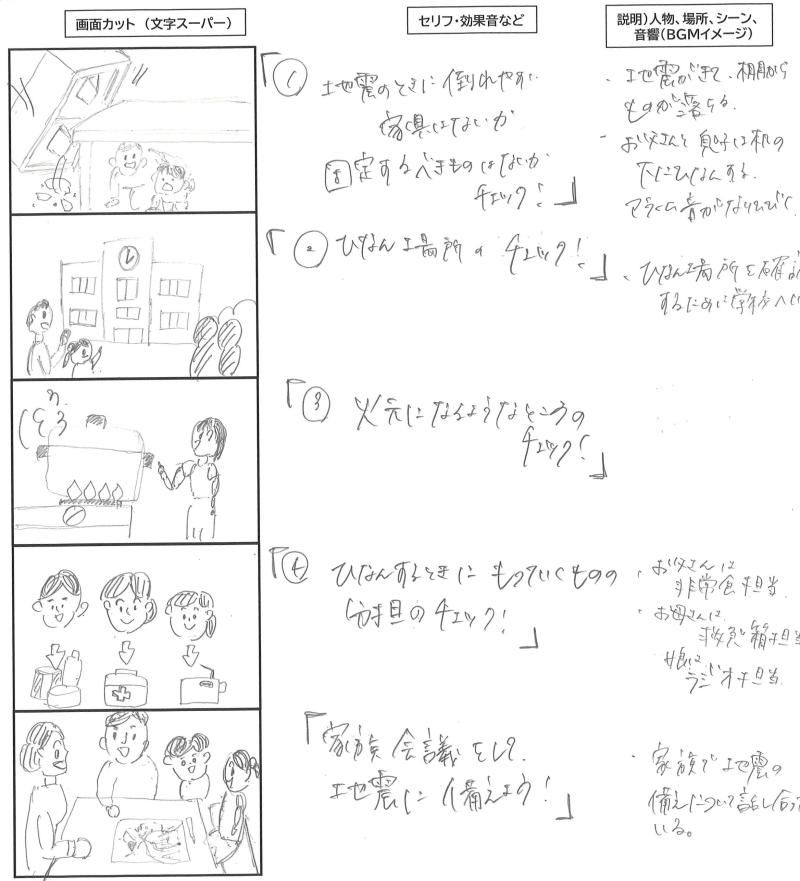 画面カット （文字スーパー）
セリフ・効果音など
説明）人物、場所、シーン、
音響（BGMイメージ）
「① 地震のときに倒れやすい
家具はないか
固定するべきものはないか
チェック！」
・地震がきて、棚から
ものが落ちる。
・お父さんと息子は机の
下にひなんする。
アラーム音がなりひびく
「② ひなん場所のチェック！」
・ひなん場所を確認
するために学校へい
「③ 火元になるようなところの
チェック！」
「④ ひなんするときにもっていくものの
分担のチェック！」
・お父さんは
非常食担当
・お母さんは
救急箱担当
娘は
ラジオ担当
「家族会議をして
地震に備えよう！」
・家族で地震の
備えについて話し合って
いる。